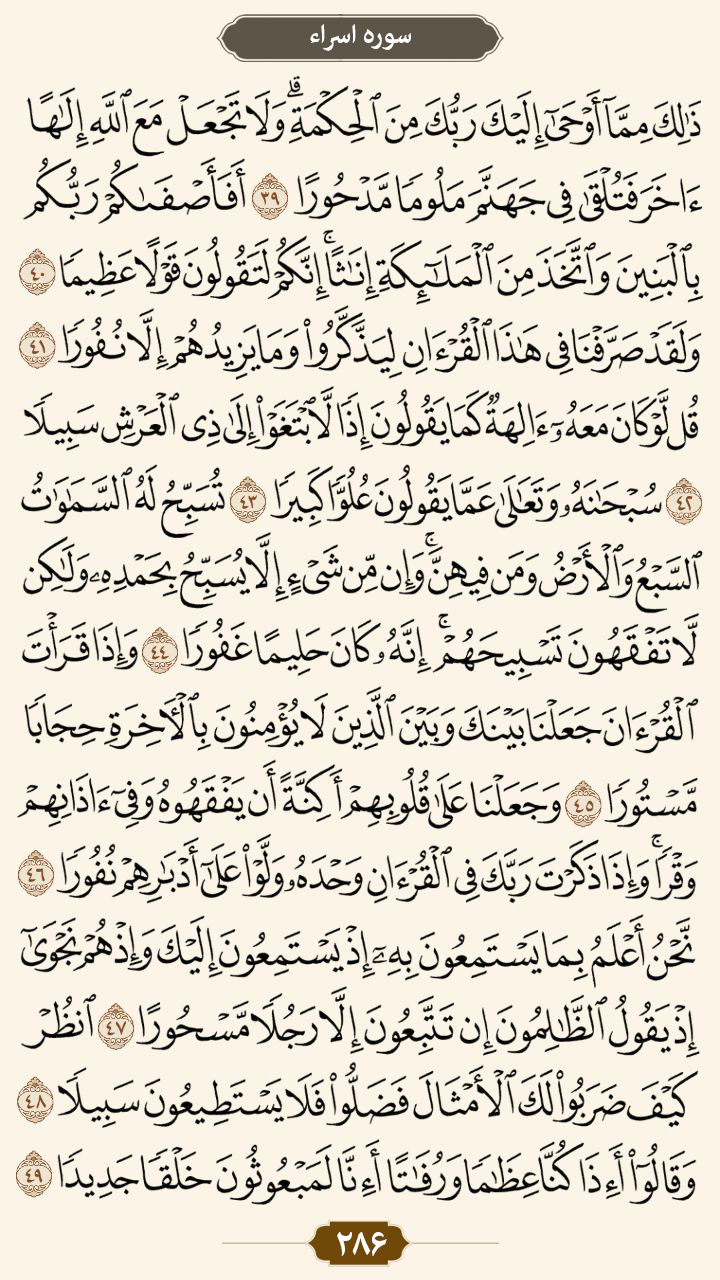 سوره اسراء
ذَٰلِكَ مِمَّآ أَوْحَىٰٓ إِلَيْكَ رَبُّكَ مِنَ ٱلْحِكْمَةِ ۗ وَلَا تَجْعَلْ مَعَ ٱللَّهِ إِلَٰهًا
ءَاخَرَ فَتُلْقَىٰ فِى جَهَنَّمَ مَلُومًا مَّدْحُورًا ٣٩ أَفَأَصْفَىٰكُمْ رَبُّكُم
بِٱلْبَنِينَ وَٱتَّخَذَ مِنَ ٱلْمَلَٰٓئِكَةِ إِنَٰثًا ۚ إِنَّكُمْ لَتَقُولُونَ قَوْلًا عَظِيمًا ٤٠
وَلَقَدْ صَرَّفْنَا فِى هَٰذَا ٱلْقُرْءَانِ لِيَذَّكَّرُوا۟ وَمَا يَزِيدُهُمْ إِلَّا نُفُورًا ٤١
قُل لَّوْ كَانَ مَعَهُۥٓ ءَالِهَةٌ كَمَا يَقُولُونَ إِذًا لَّٱبْتَغَوْا۟ إِلَىٰ ذِى ٱلْعَرْشِ سَبِيلًا
٤٢ سُبْحَٰنَهُۥ وَتَعَٰلَىٰ عَمَّا يَقُولُونَ عُلُوًّا كَبِيرًا ٤٣ تُسَبِّحُ لَهُ ٱلسَّمَٰوَٰتُ
ٱلسَّبْعُ وَٱلْأَرْضُ وَمَن فِيهِنَّ ۚ وَإِن مِّن شَىْءٍ إِلَّا يُسَبِّحُ بِحَمْدِهِۦ وَلَٰكِن
لَّا تَفْقَهُونَ تَسْبِيحَهُمْ ۗ إِنَّهُۥ كَانَ حَلِيمًا غَفُورًا ٤٤ وَإِذَا قَرَأْتَ
ٱلْقُرْءَانَ جَعَلْنَا بَيْنَكَ وَبَيْنَ ٱلَّذِينَ لَا يُؤْمِنُونَ بِٱلْأَخِرَةِ حِجَابًا
مَّسْتُورًا ٤٥ وَجَعَلْنَا عَلَىٰ قُلُوبِهِمْ أَكِنَّةً أَن يَفْقَهُوهُ وَفِىٓ ءَاذَانِهِمْ
وَقْرًا ۚ وَإِذَا ذَكَرْتَ رَبَّكَ فِى ٱلْقُرْءَانِ وَحْدَهُۥ وَلَّوْا۟ عَلَىٰٓ أَدْبَٰرِهِمْ نُفُورًا ٤٦
نَّحْنُ أَعْلَمُ بِمَا يَسْتَمِعُونَ بِهِۦٓ إِذْ يَسْتَمِعُونَ إِلَيْكَ وَإِذْ هُمْ نَجْوَىٰٓ
إِذْ يَقُولُ ٱلظَّٰلِمُونَ إِن تَتَّبِعُونَ إِلَّا رَجُلًا مَّسْحُورًا ٤٧ ٱنظُرْ
كَيْفَ ضَرَبُوا۟ لَكَ ٱلْأَمْثَالَ فَضَلُّوا۟ فَلَا يَسْتَطِيعُونَ سَبِيلًا ٤٨
وَقَالُوٓا۟ أَءِذَا كُنَّا عِظَٰمًا وَرُفَٰتًا أَءِنَّا لَمَبْعُوثُونَ خَلْقًا جَدِيدًا ٤٩
۲۸۶